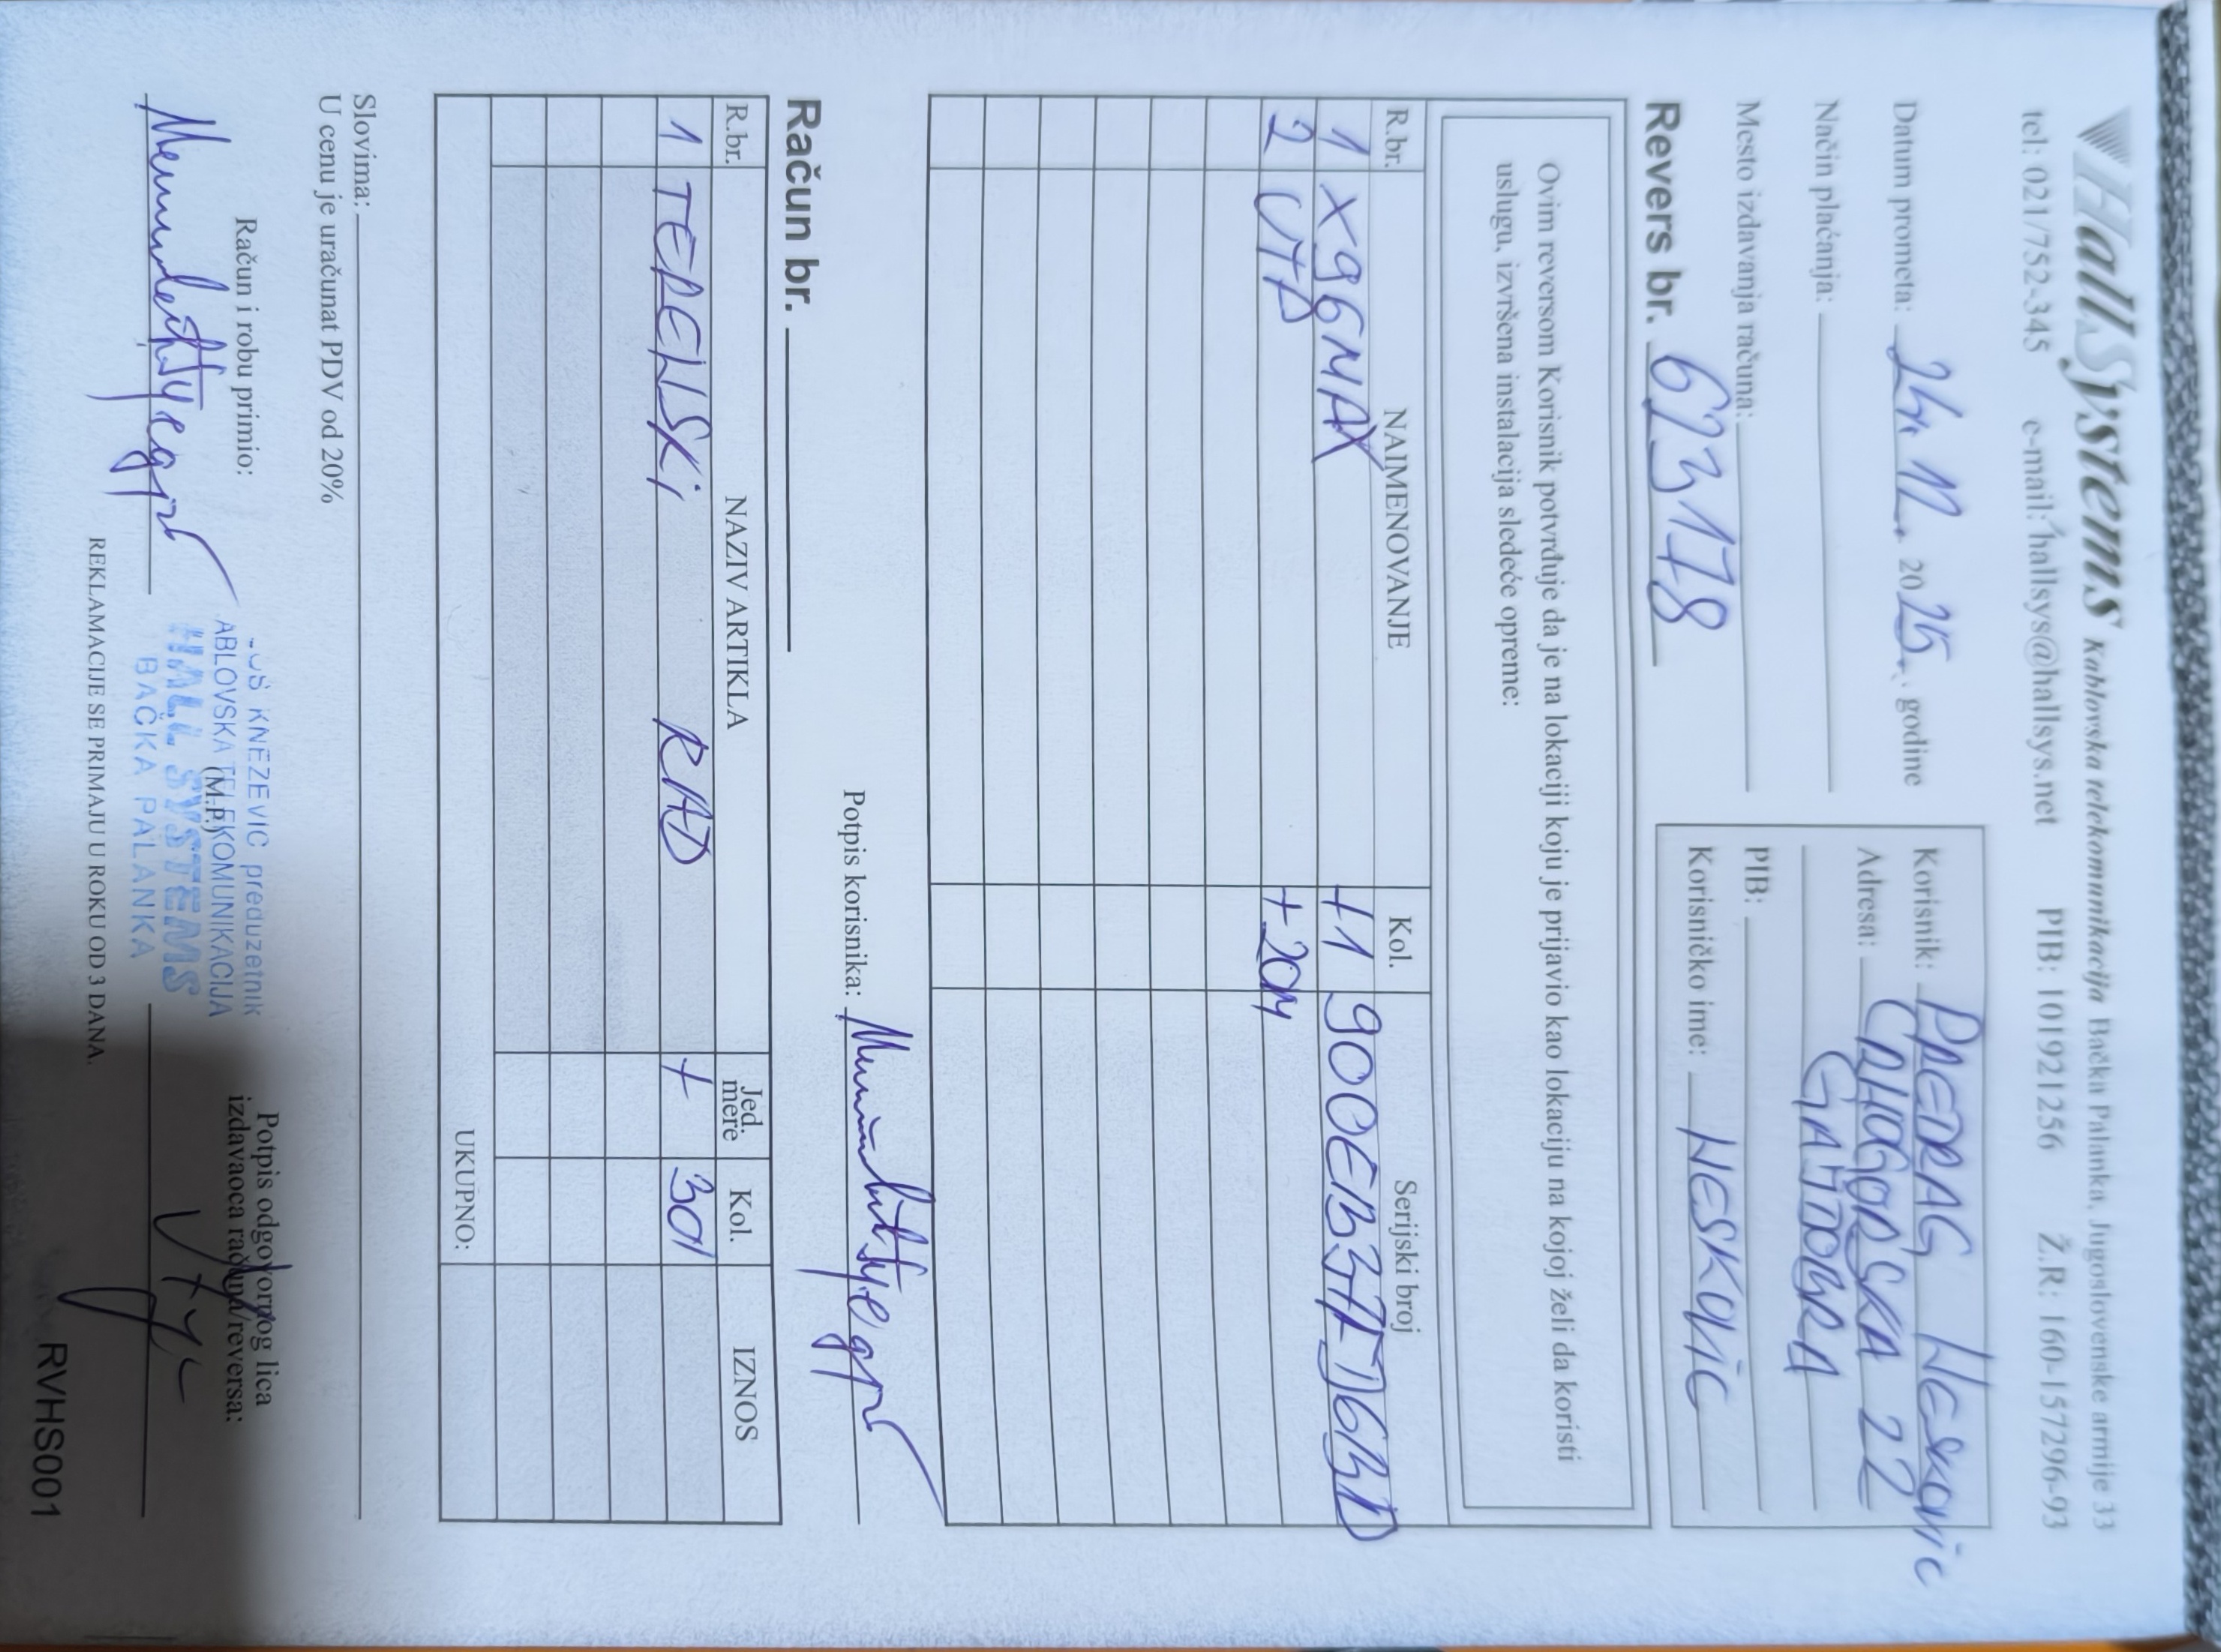 HallSystems Kablovska telekomunikacija Bačka Palanka, Jugoslovenske armije 33
tel: 021/752-345 e-mail: hallsys@hallsys.net PIB: 101921256 Ž.R: 160-157296-93
Datum prometa: 24. 12. 2025. godine
Način plaćanja:
Mesto izdavanja računa:
Revers br. 623178
Korisnik: PREDRAG NESKOVIC
Adresa: CRNOGORSKA 22
GAJDOBRA
PIB:
Korisničko ime: NESKOVIC
Ovim reversom Korisnik potvrđuje da je na lokaciji koju je prijavio kao lokaciju na kojoj želi da koristi
uslugu, izvršena instalacija sledeće opreme:
R.br. NAIMENOVANJE Kol. Serijski broj
1 X96MAX +1 900EB37FD6BD
2 UTP +20M
Potpis korisnika:
Račun br.
R.br. NAZIV ARTIKLA Jed. mere Kol. IZNOS
1 TERENSKI RAD + 301
UKUPNO:
Slovima:
U cenu je uračunat PDV od 20%
Račun i robu primio:
KNEZEVIC preduzetnik
ABLOVSKA TELEKOMUNIKACIJA
(M.P.)
HALL SYSTEMS
BAČKA PALANKA
Potpis odgovornog lica
izdavaoca računa/reversa:
REKLAMACIJE SE PRIMAJU U ROKU OD 3 DANA.
RVHS001